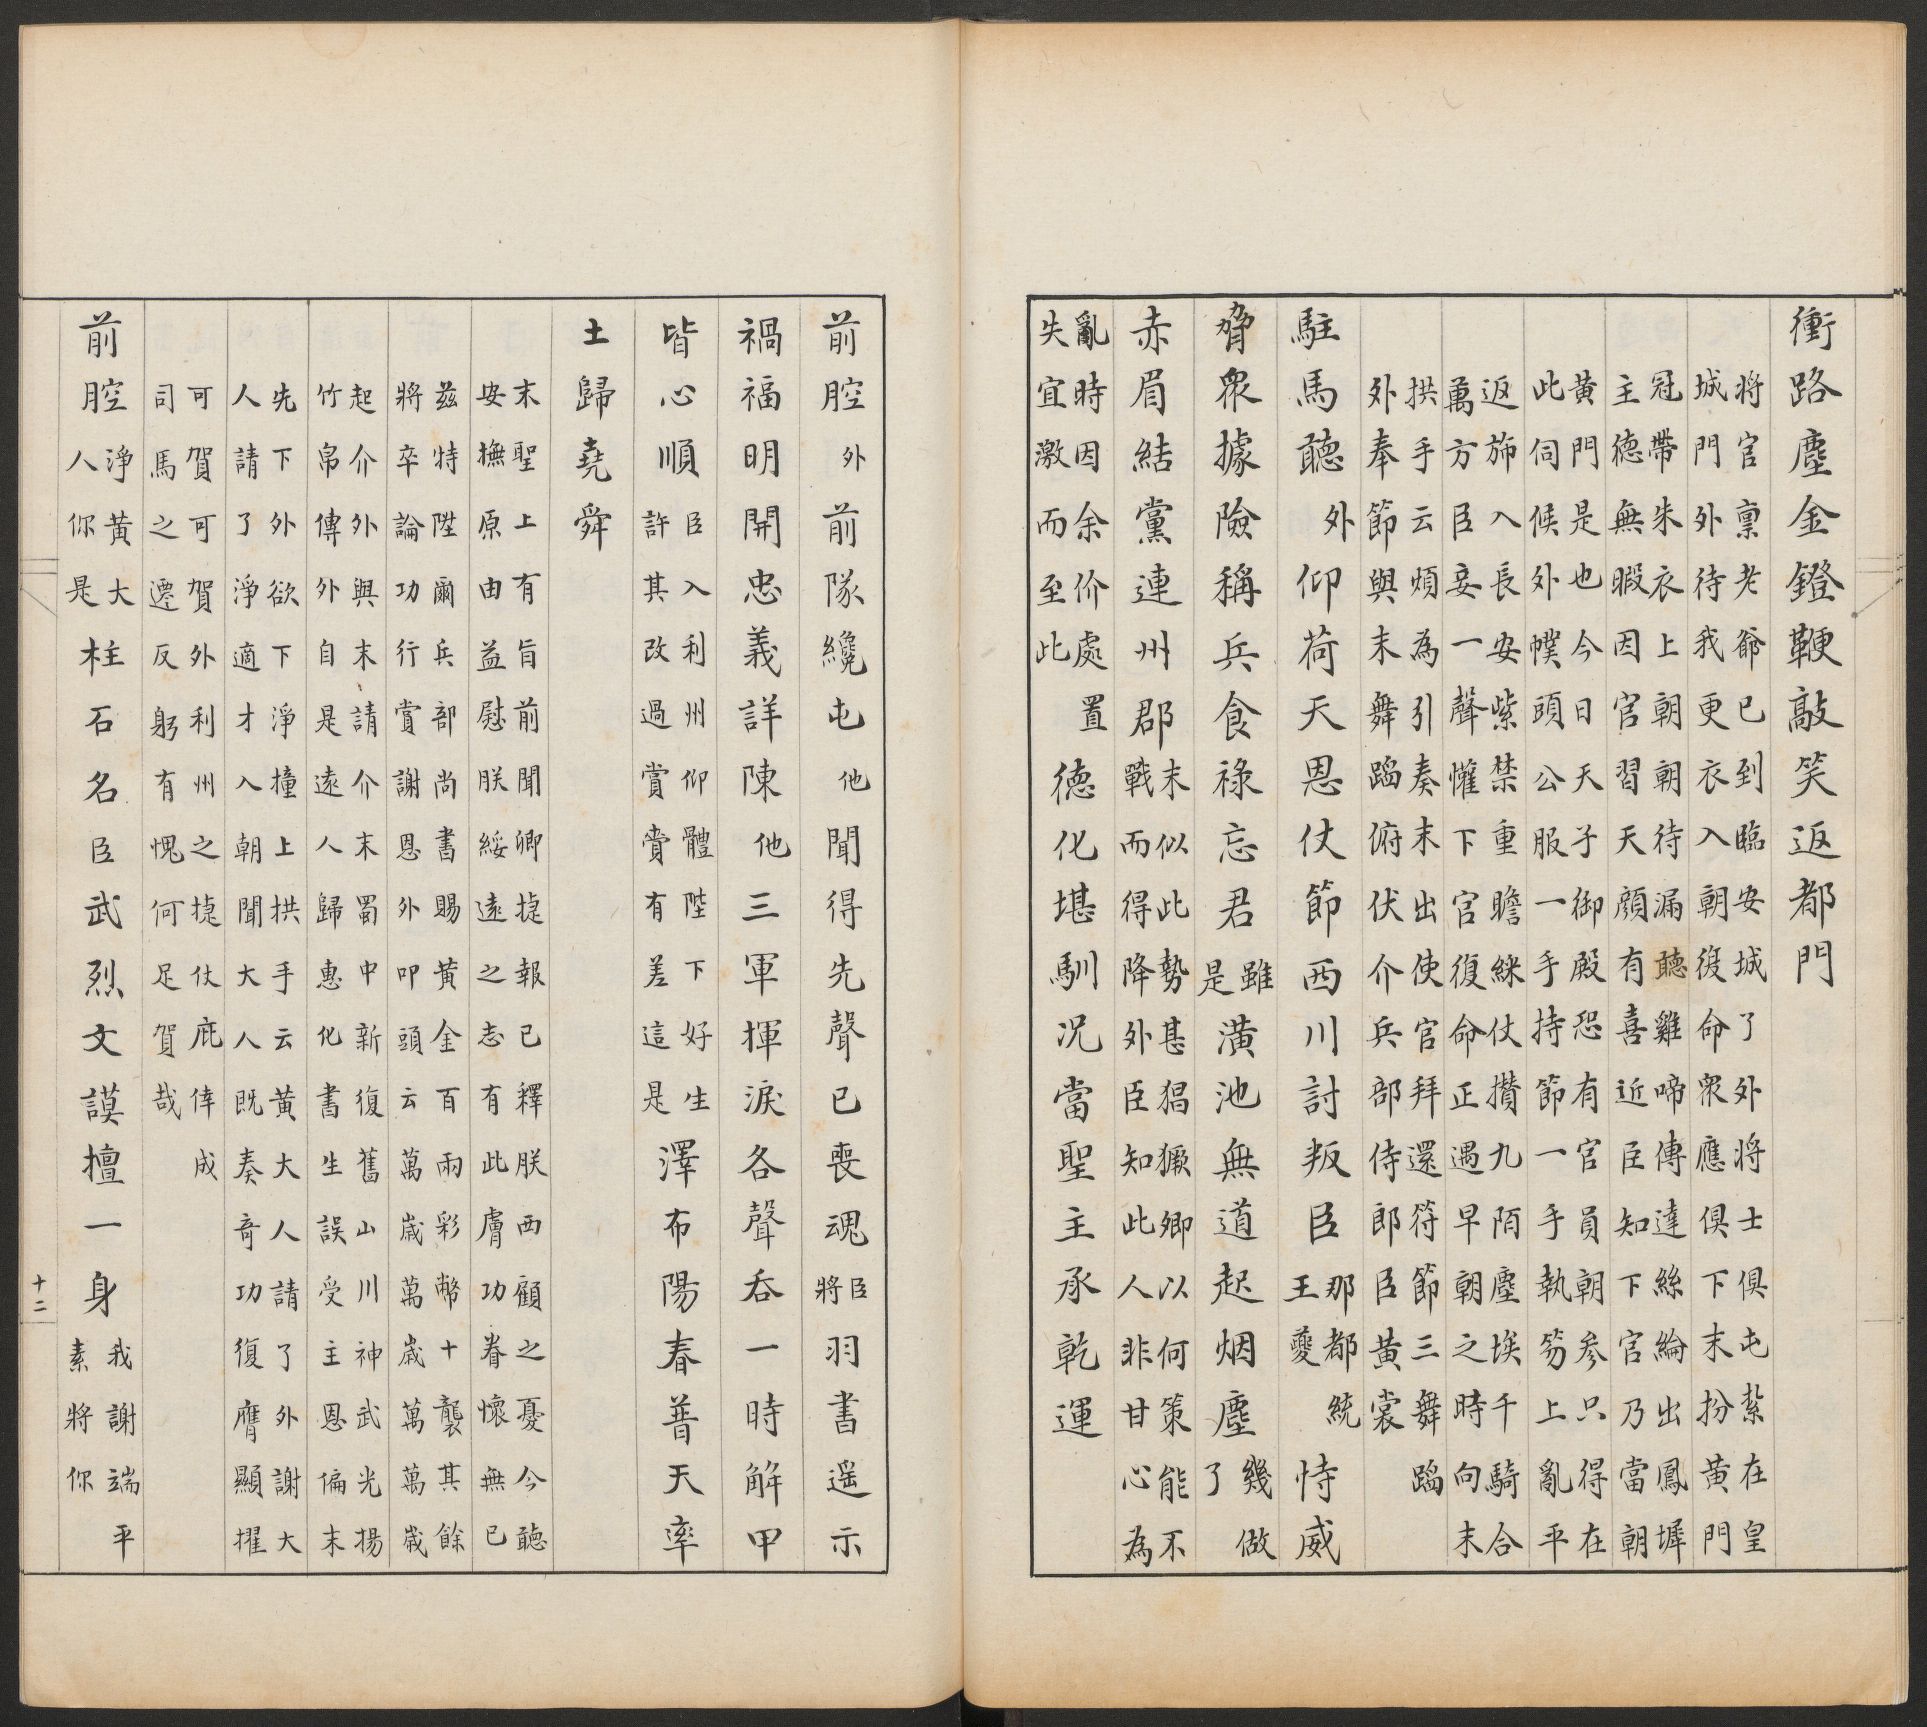 衝路塵金鐙鞭敲笑返都門
將官禀老爺已到臨安城了外將士俱屯紥在皇
城門外待我更衣入朝復命衆應俱下末扮黃門
冠帶朱衣上朝朝待漏聽雞啼傳達絲綸出鳳墀
主德無暇因官習天顏有喜近臣知下官乃當朝
黃門是也今日天子御殿恐有官員朝参只得在
此伺候外幞頭公服一手持節一手執笏上亂平
返斾入長安紫禁重瞻綵仗攢九陌塵埃千騎合
萬方臣妾一聲懽下官復命正遇早朝之時向末
拱手云煩為引奏末出使官拜還符節三舞蹈
外奉節與末舞蹈俯伏介兵部侍郎臣黃裳
駐馬聽外仰荷天恩仗節西川討叛臣那都統王夔恃威
脅衆據險稱兵食祿忘君雖是潢池無道起烟塵幾做了
赤眉結黨連州郡末似此勢甚猖獗卿以何策能不
戰而得降外臣知此人非甘心為
亂時因余价處置
失宜激而至此德化堪馴况當聖主承乾運
前腔外前隊纔屯他聞得先聲已喪魂臣將羽書遥示
禍福明開忠義詳陳他三軍揮淚各聲吞一時解甲
皆心順臣入利州仰體陛下好生
許其改過賞賚有差這是澤布陽春普天率
土歸堯舜
末聖上有旨前聞卿捷報已釋朕西顧之憂今聽
安撫原由益慰朕綏遠之志有此膚功眷懷無已
兹特陞爾兵部尚書賜黃金百兩彩幣十襲其餘
將卒論功行賞謝恩外叩頭云萬歲萬歲萬萬歲
起介外與末請介末蜀中新復舊山川神武光揚
竹帛傳外自是遠人歸惠化書生誤受主恩偏末
先下外欲下淨撞上拱手云黃大人請了外謝大
人請了淨適才入朝聞大人既奏奇功復膺顯擢
可賀可賀外利州之捷仗庇倖成
司馬之遷反躬有愧何足賀哉
前腔淨黃大人你是柱石名臣武烈文謨擅一身我謝端平素將你
十二